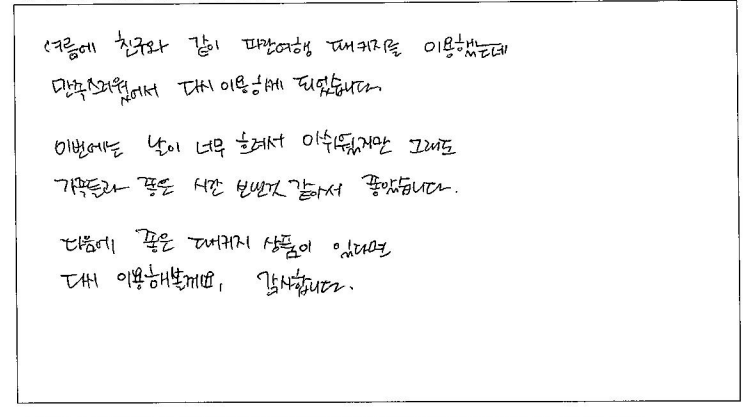 여름에 친구와 같이 파란여행 패키지를 이용했는데
만족스러웠어서 다시 이용하게 되었습니다
이번에는 날이 너무 흐려서 아쉬웠지만 그래도
가족들과 좋은 시간 보낸것 같아서 좋았습니다.
다음에 좋은 패키지 상품이 있다면
다시 이용해볼께요, 감사합니다.